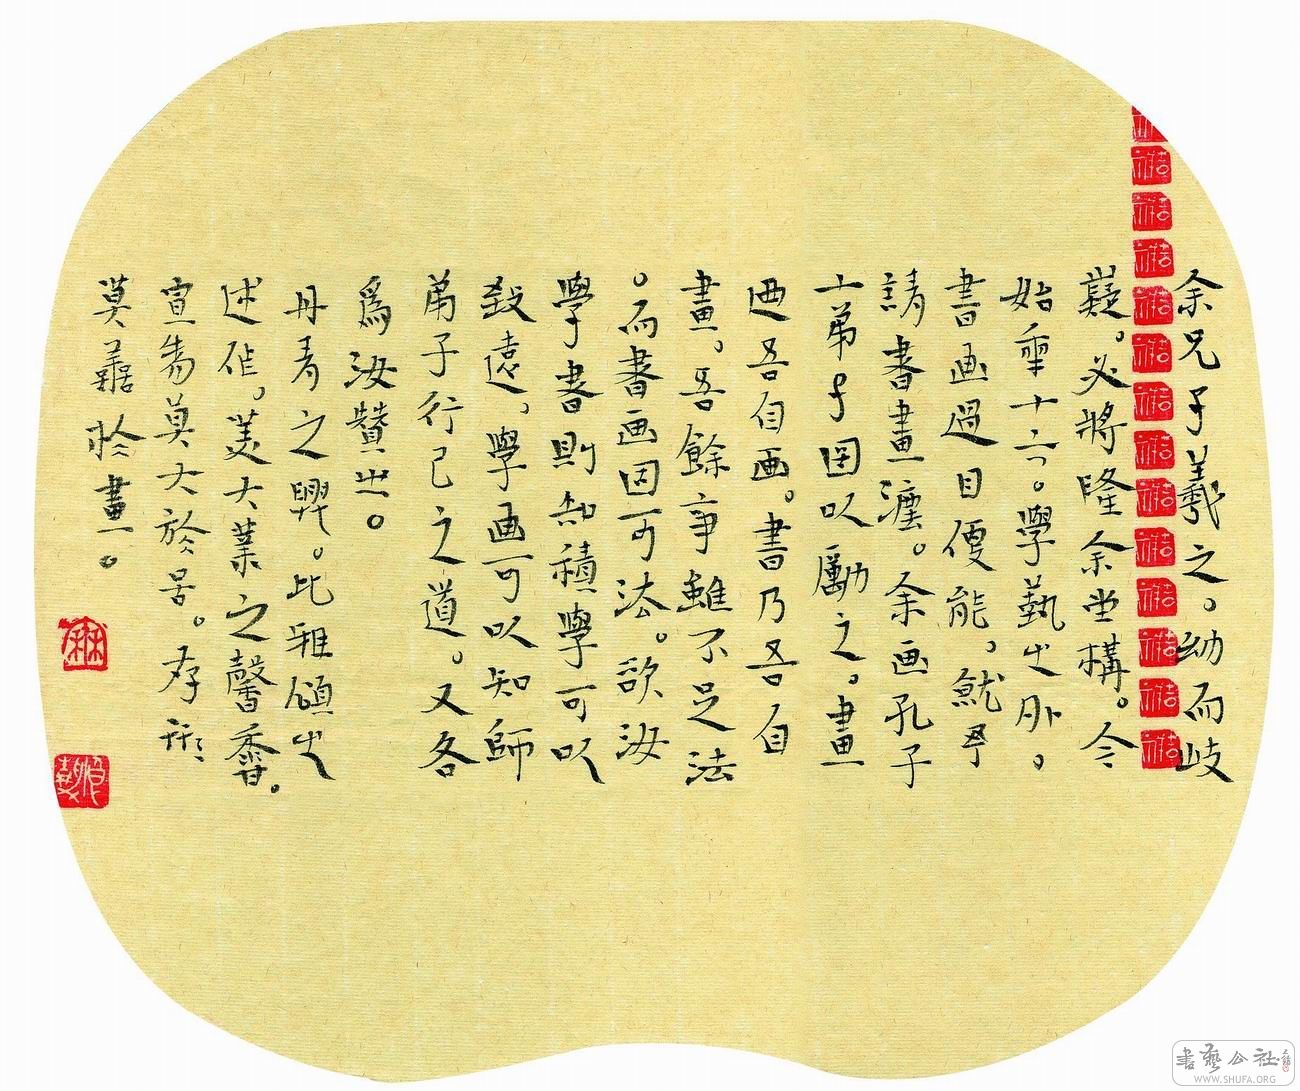 余兄子羲之。幼而歧
嶷。必將隆余堂構。今
始年十六。學藝之外。
書画過目便能。就予
請書畫法。余画孔子
十弟子图以勵之。畫
迺吾自画。書乃吾自
畫。吾餘事雖不足法
。而書画固可法。欲汝
學書則知積學可以
致遠，學画可以知師
弟子行己之道。又各
爲汝贊之。
丹青之興。比雅頌之
述作。美大業之馨香。
宣物莫大於言。存形
莫善於畫。
書藝公社
WWW.SHUFA.ORG